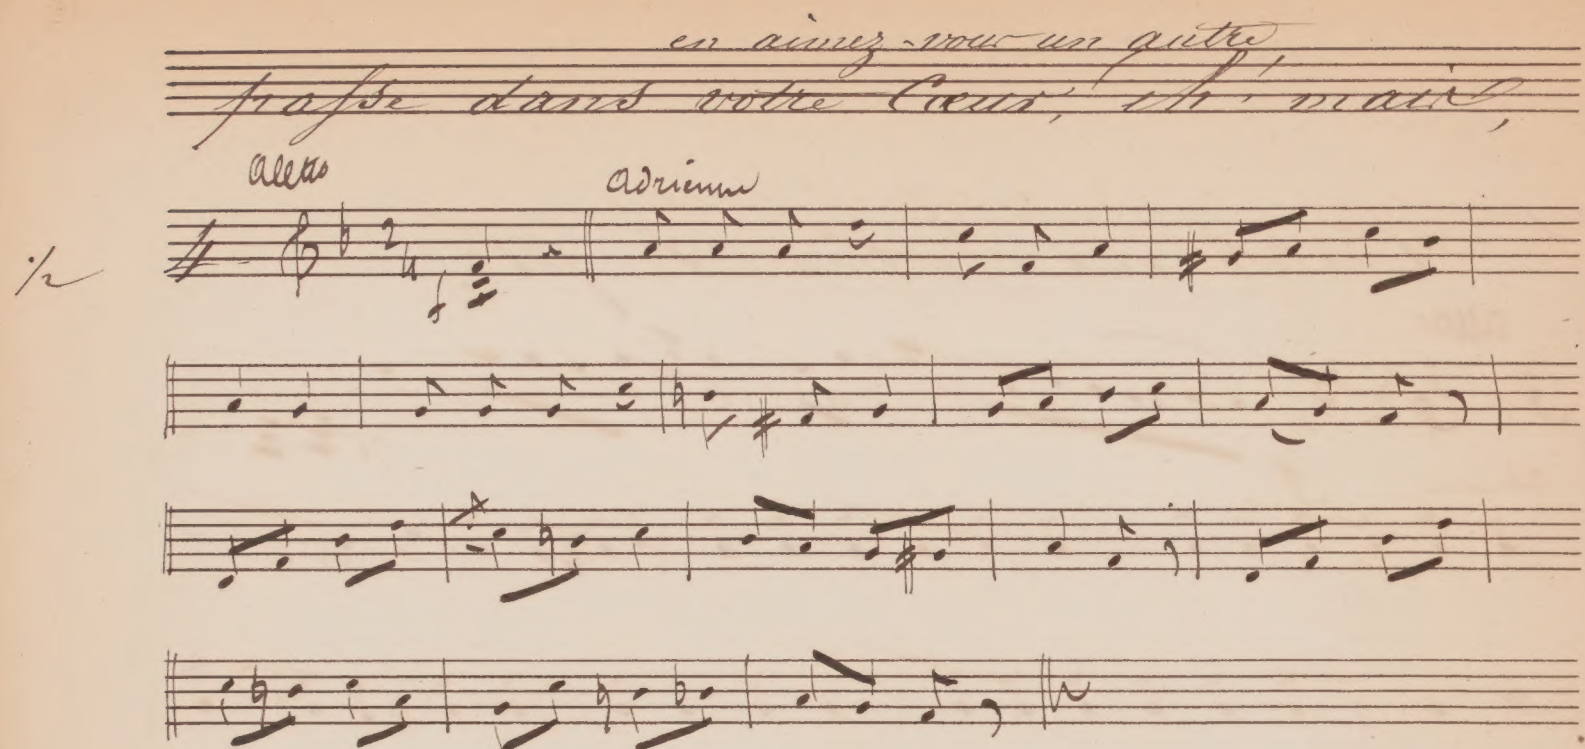 en aimez-vous un autre
passe dans votre Cœur, eh! mais,
Alletto Adrienne
1/2
2
4